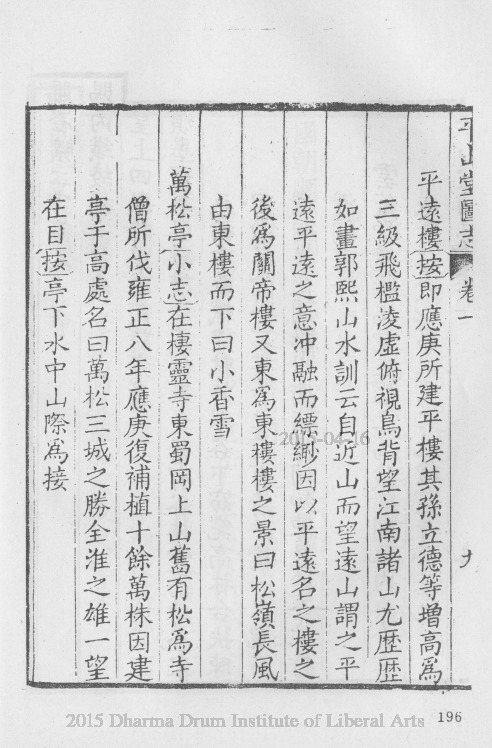 平山堂圖志 卷一 九
平遠樓按即應庚所建平樓其孫立德等增高為
三級飛檻淩虛俯視鳥背望江南諸山尤歷歷
如畫郭熙山水訓云自近山而望遠山謂之平
遠平遠之意冲融而縹緲因以平遠名之樓之
後為關帝樓又東為東樓樓之景曰松嶺長風
由東樓而下曰小香雪
萬松亭小志在棲靈寺東蜀岡上山舊有松為寺
僧所伐雍正八年應庚復補植十餘萬株因建
亭于高處名曰萬松三城之勝全淮之雄一望
在目按亭下水中山際為接
2015-04-16
2015 Dharma Drum Institute of Liberal Arts
196